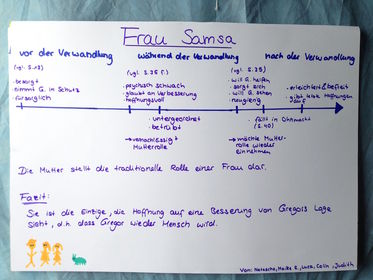 Frau Samsa
vor der Verwandlung während der Verwandlung nach der Verwandlung
(vgl. S. 25)
- besorgt
- nimmt G. in Schutz
- fürsorglich
- psychisch schwach
- glaubt an Verbesserung
- hoffnungsvoll
- will G. helfen
- sorgt sich
- will G. sehen
- neugierig
- erleichtert & befreit
- gibt letzte Hoffnungen auf
- untergeordnet
- betrübt
→ vernachlässigt
Mutterrolle
- fällt in Ohnmacht
(S. 40)
→ möchte Mutter-
rolle wieder
einnehmen
Die Mutter stellt die traditionelle Rolle einer Frau dar.
Fazit:
Sie ist die Einzige, die Hoffnung auf eine Besserung von Gregors Lage
sieht, d.h. dass Gregor wieder Mensch wird.
Von: Natascha, Luca, Colin, Judith